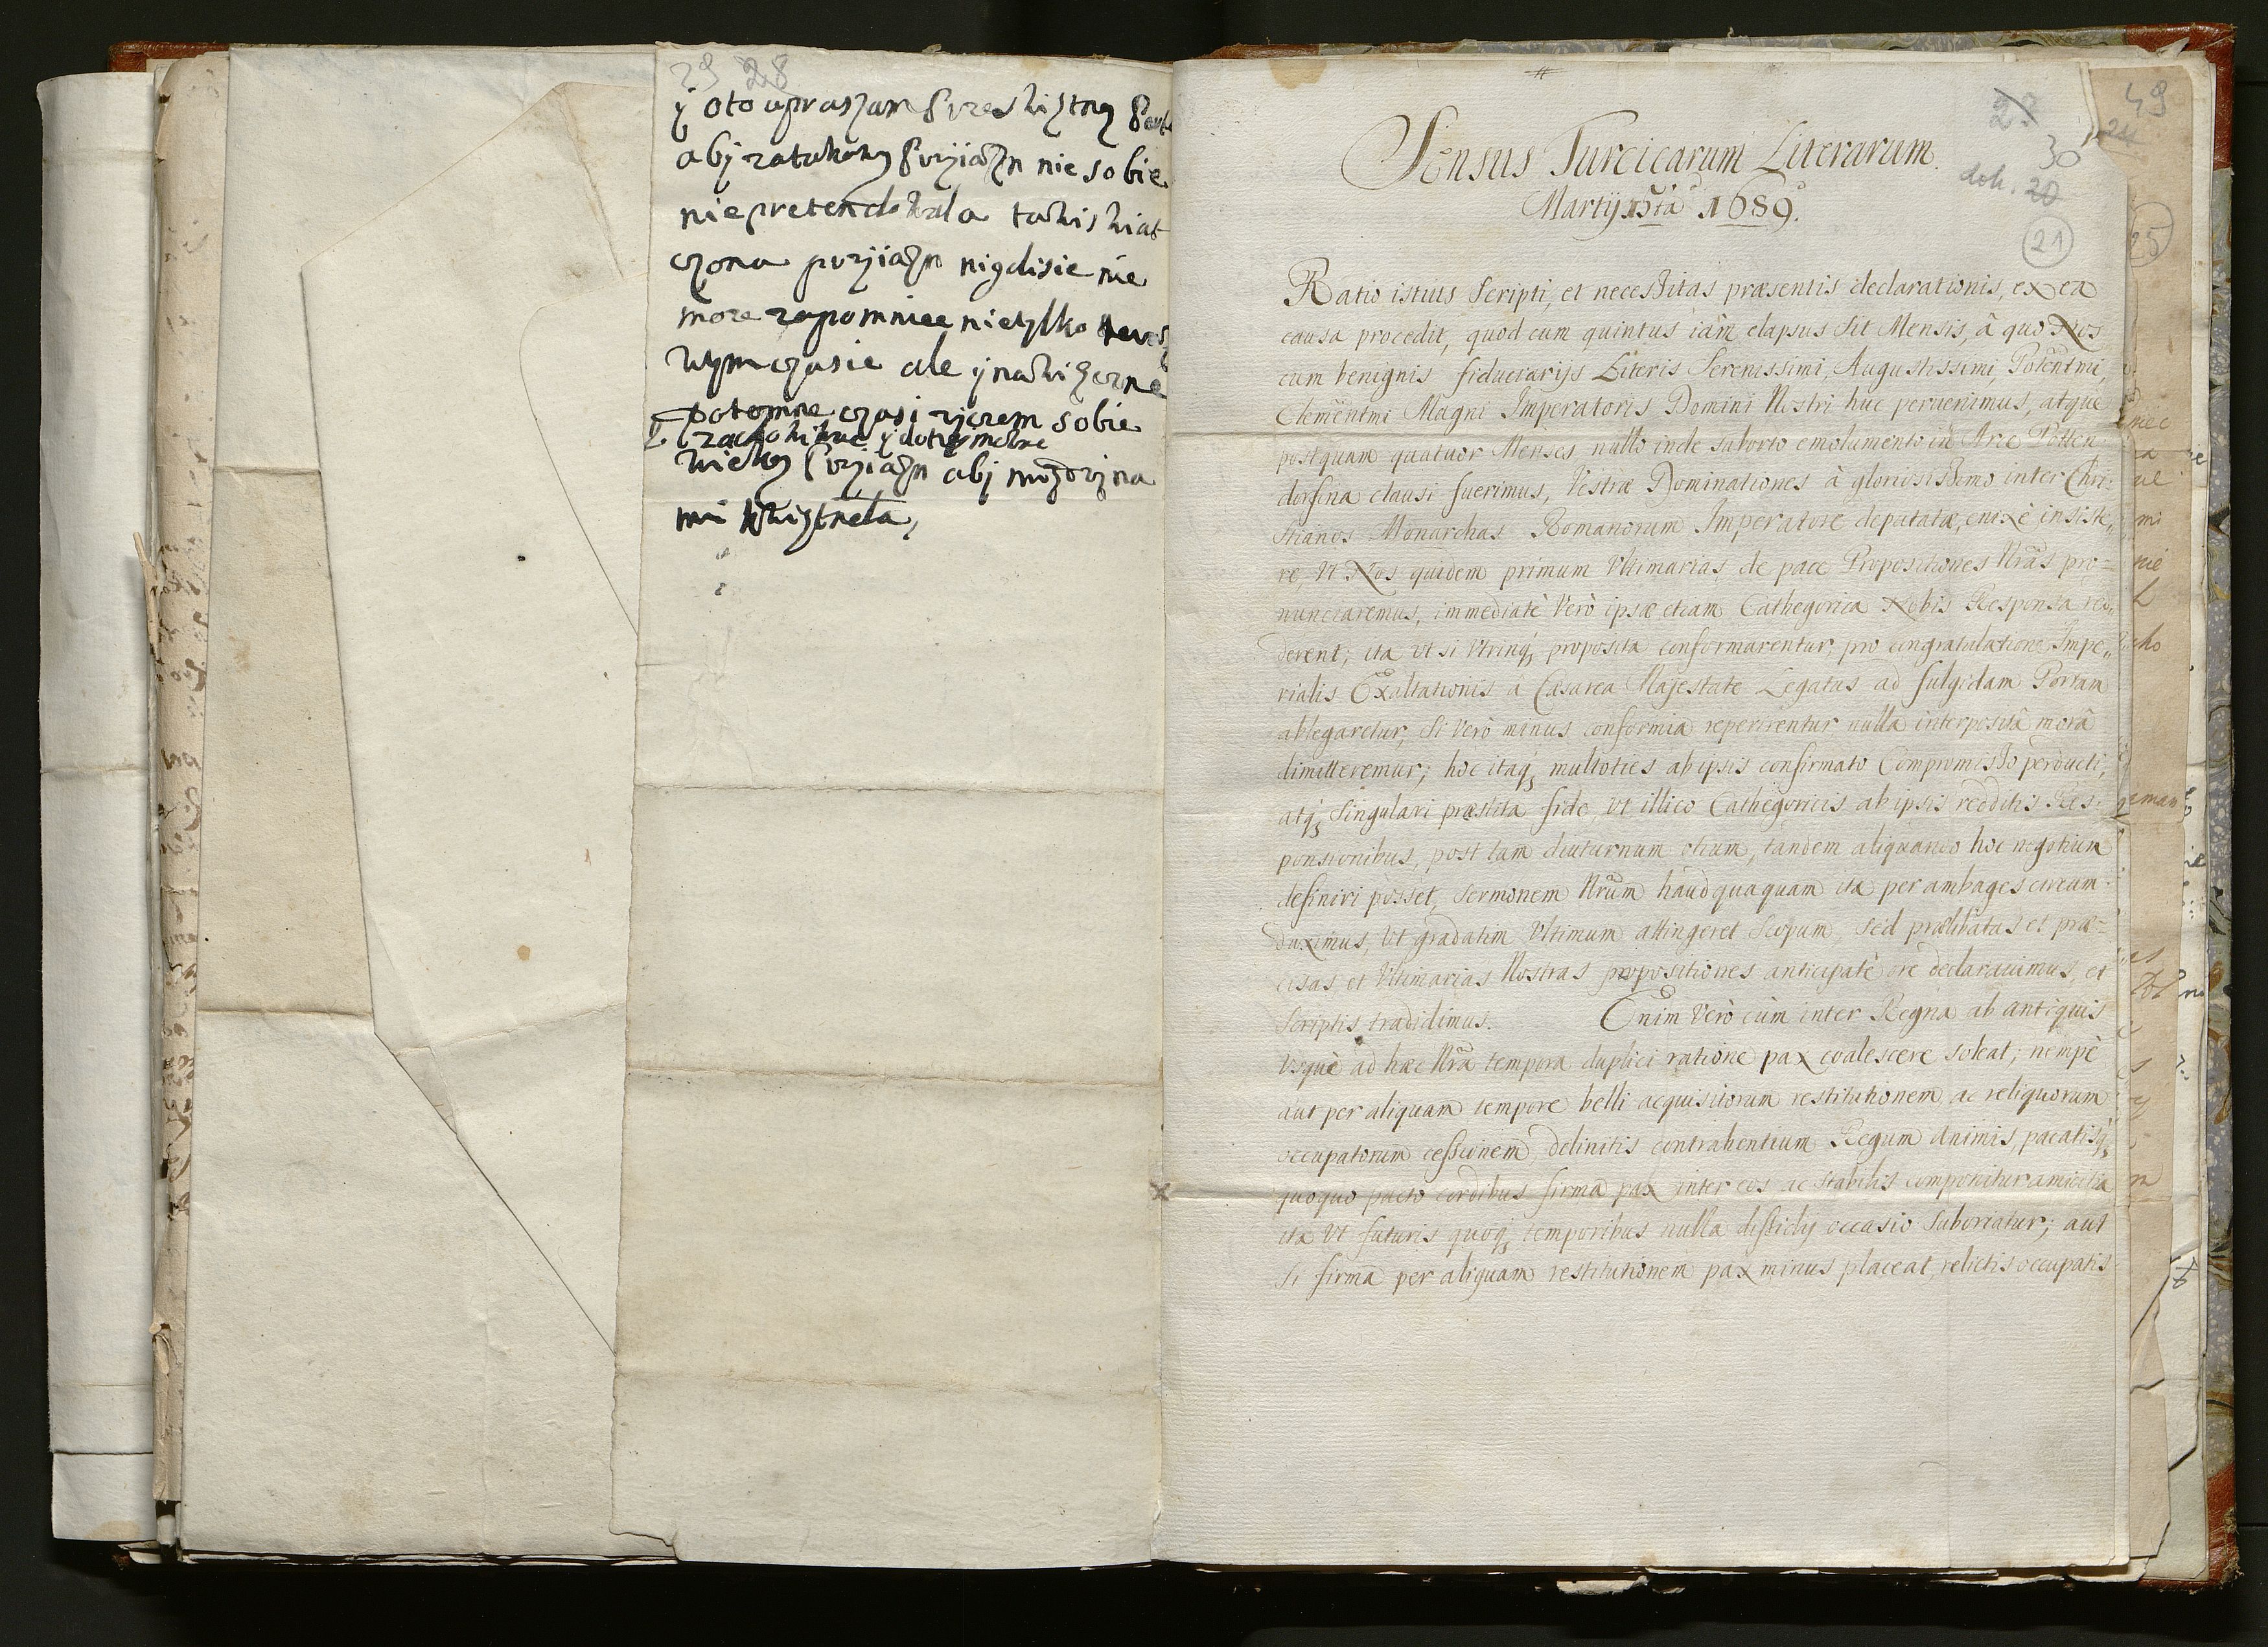 29 28
y oto upraszam
abj ratuhony przjiazn nie sobie
nie pretendohala tahishiat
czona przjiazn nigdisie nie
moze zapomniec nietylko
wtym czasie ale y nawieczne
potomne czasi zjczem sobie
wielky przjiazn abj mozdzj na
mi
28
30
dok. 20
21
Sensus Turcicarum Literarum.
Martij 13tia 1689.
Ratio istius Scripti, et necessitas præsentis declarationis, ex ea
causa procedit, quod cum quintus iam elapsus sit Mensis, â quo Nos
cum benignis fiduciarijs Literis Serenissimi, Augustissimi, Potentmi,
Clementmi Magni Imperatoris Domini Nostri huc peruenimus, atque
postquam quatuor Menses nullo inde suborto emolumento in Arce Potten-
dorfina clausi fuerimus, Vestræ Dominationes à gloriosissimo inter Chri-
stianos Monarchas Romanorum Imperatore deputatæ, enixè insiste„
re, Vt Nos quidem primum Vltimarias de pace Propositiones Nrãs pro=
nunciaremus, immediatè Verò ipsæ etiam Cathegorica Nobis Responsa red„
derent; ita vt si Vtrinq; proposita conformarentur, pro congratulatione Impe„
rialis Exaltationis à Cæsarea Majestate Legatus ad fulgidam Portam
ablegaretur, Si Verò minus conformia reperirentur nulla interpositâ morâ
dimitteremur; hoc itaq; multoties ab ipsis confirmato Compromisso perducti,
atq; Singulari præstita fide, vt illico Cathegoricis ab ipsis redditis Res-
ponsionibus, post tam diuturnum otium, tandem aliquando hoc negotium
definiri posset, Sermonem Nrũm haudquaquam ita per ambages circum-
duximus, Vt gradatim Vltimum attingeret Scopum, sed prælibatas et præ-
cisas, et Vltimarias Nostras propositiones anticipatè ore declarauimus, et
Scriptis tradidimus. Enim Verò cùm inter Regna ab antiquis
Vsque ad hæc Nrã tempora duplici ratione pax coalescere soleat; nempè
aut per aliquam tempore belli acquisitorum restitutionem, ac reliquorum
occupatorum cessionem, delinitis contrahentium Regum Animis, pacatisq;
quoquo pacto cordibus firma pax inter eos ac stabilis componitur amicitia
ita Vt futuris quoq; temporibus nulla dissidij occasio Suboriatur; aut
Si firma per aliquam restitutionem pax minus placeat, relictis occupatis
49
24
25